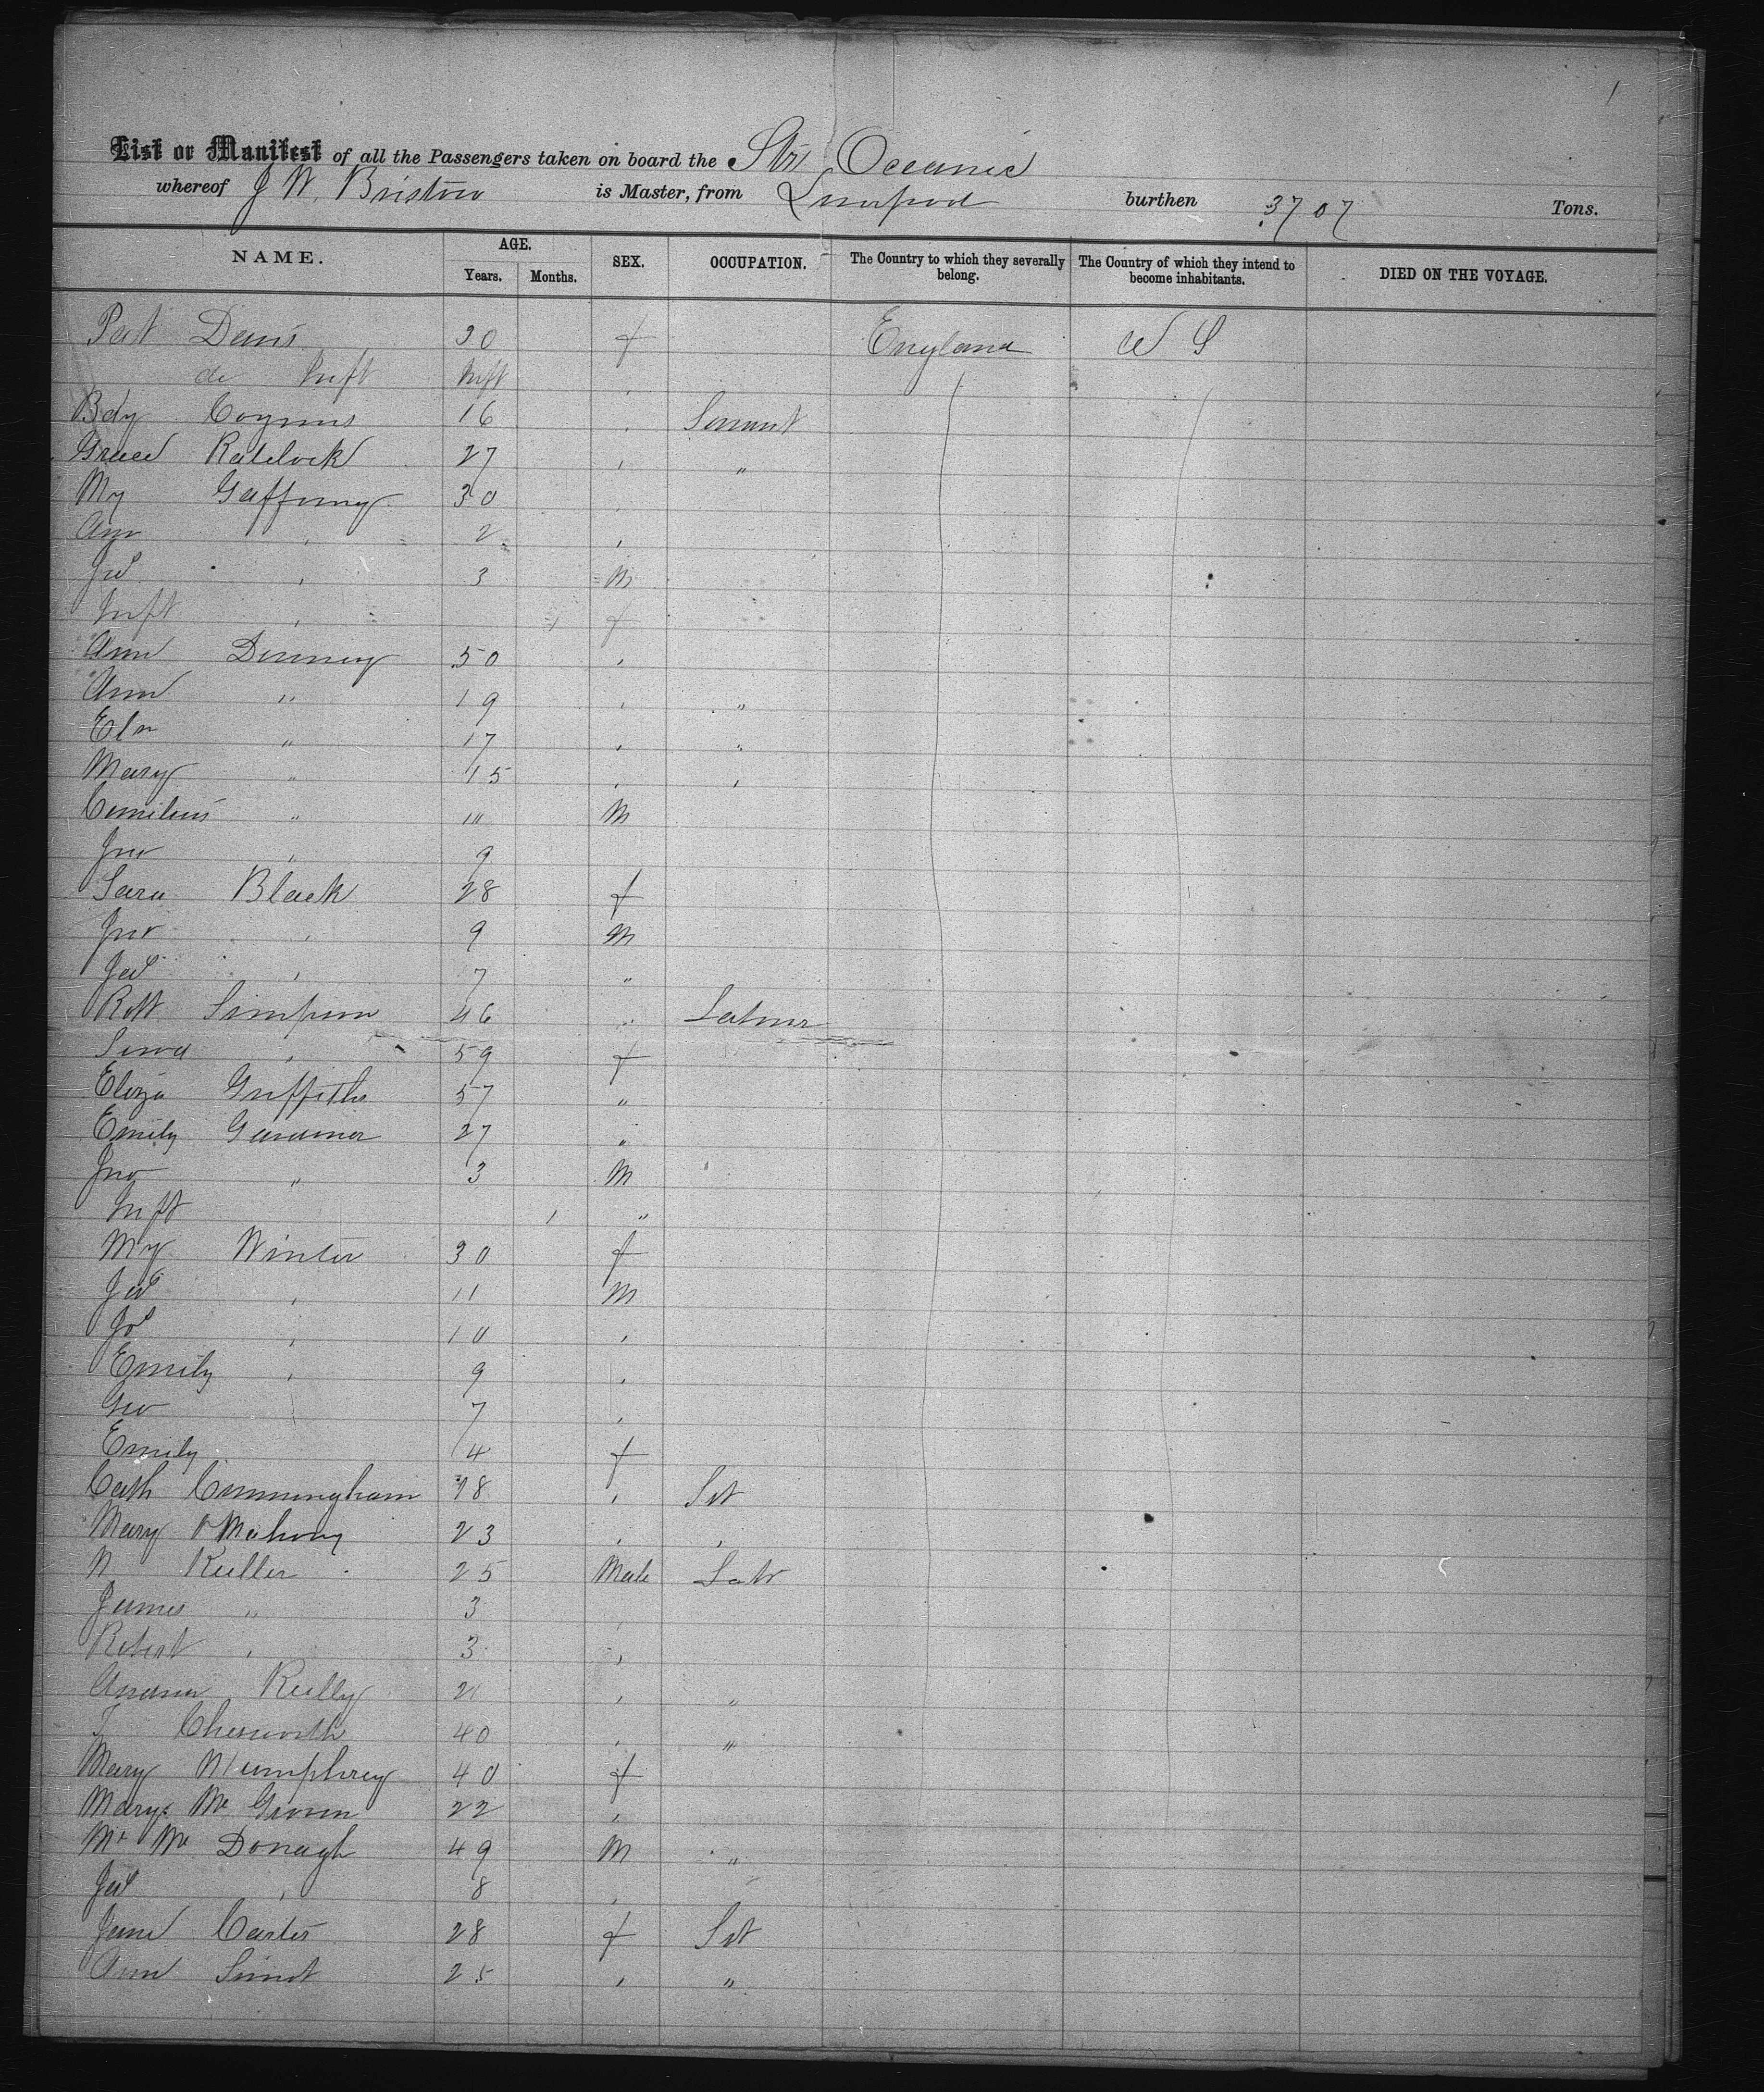 1
List or Manifest of all the Passengers taken on board the Str Oceanic
whereof J W. Bristow is Master, from Liverpool burthen 3707 Tons.
NAME. AGE. Years. Months. SEX. OCCUPATION. The Country to which they severally belong. The Country of which they intend to become inhabitants. DIED ON THE VOYAGE.
Pat Davis 20 f England U S
do Inft Inft
Bdy 16 " Servant
Grace 27 " "
My Gaffney 30 "
Ann " 2 "
Jas " 3 M
Inft " f
Ann Denney 50 "
Ann " 19 " "
Eln " 17 " "
Mary " 15 " "
Cornelius " 11 M
Jno " 9
Sara Black 28 f
Jno " 9 M
Jas " 7 "
Robt Simpson 46 " Labour
" 59 f
Eliza Griffiths 57 "
Emily Gardiner 27 "
Jno " 3 M
Inft 1 "
My Winter 30 f
Jas " 11 M
Jos " 10 "
Emily " 9 "
Geo 7 "
Emily 4 f
Cath Cunningham 18 " Svt
Mary O'Mahony 23 " "
N Keller 25 Male Labr
James " 3 "
Robert " 3 "
Andrew Reilly 21 " "
T Chesworth 40 " "
Mary Humphrey 40 f
Mary Mc 22 "
Mc Donagh 49 M "
Jas " 8 "
Jane Carter 28 f Svt
Ann Sinnot 25 " "